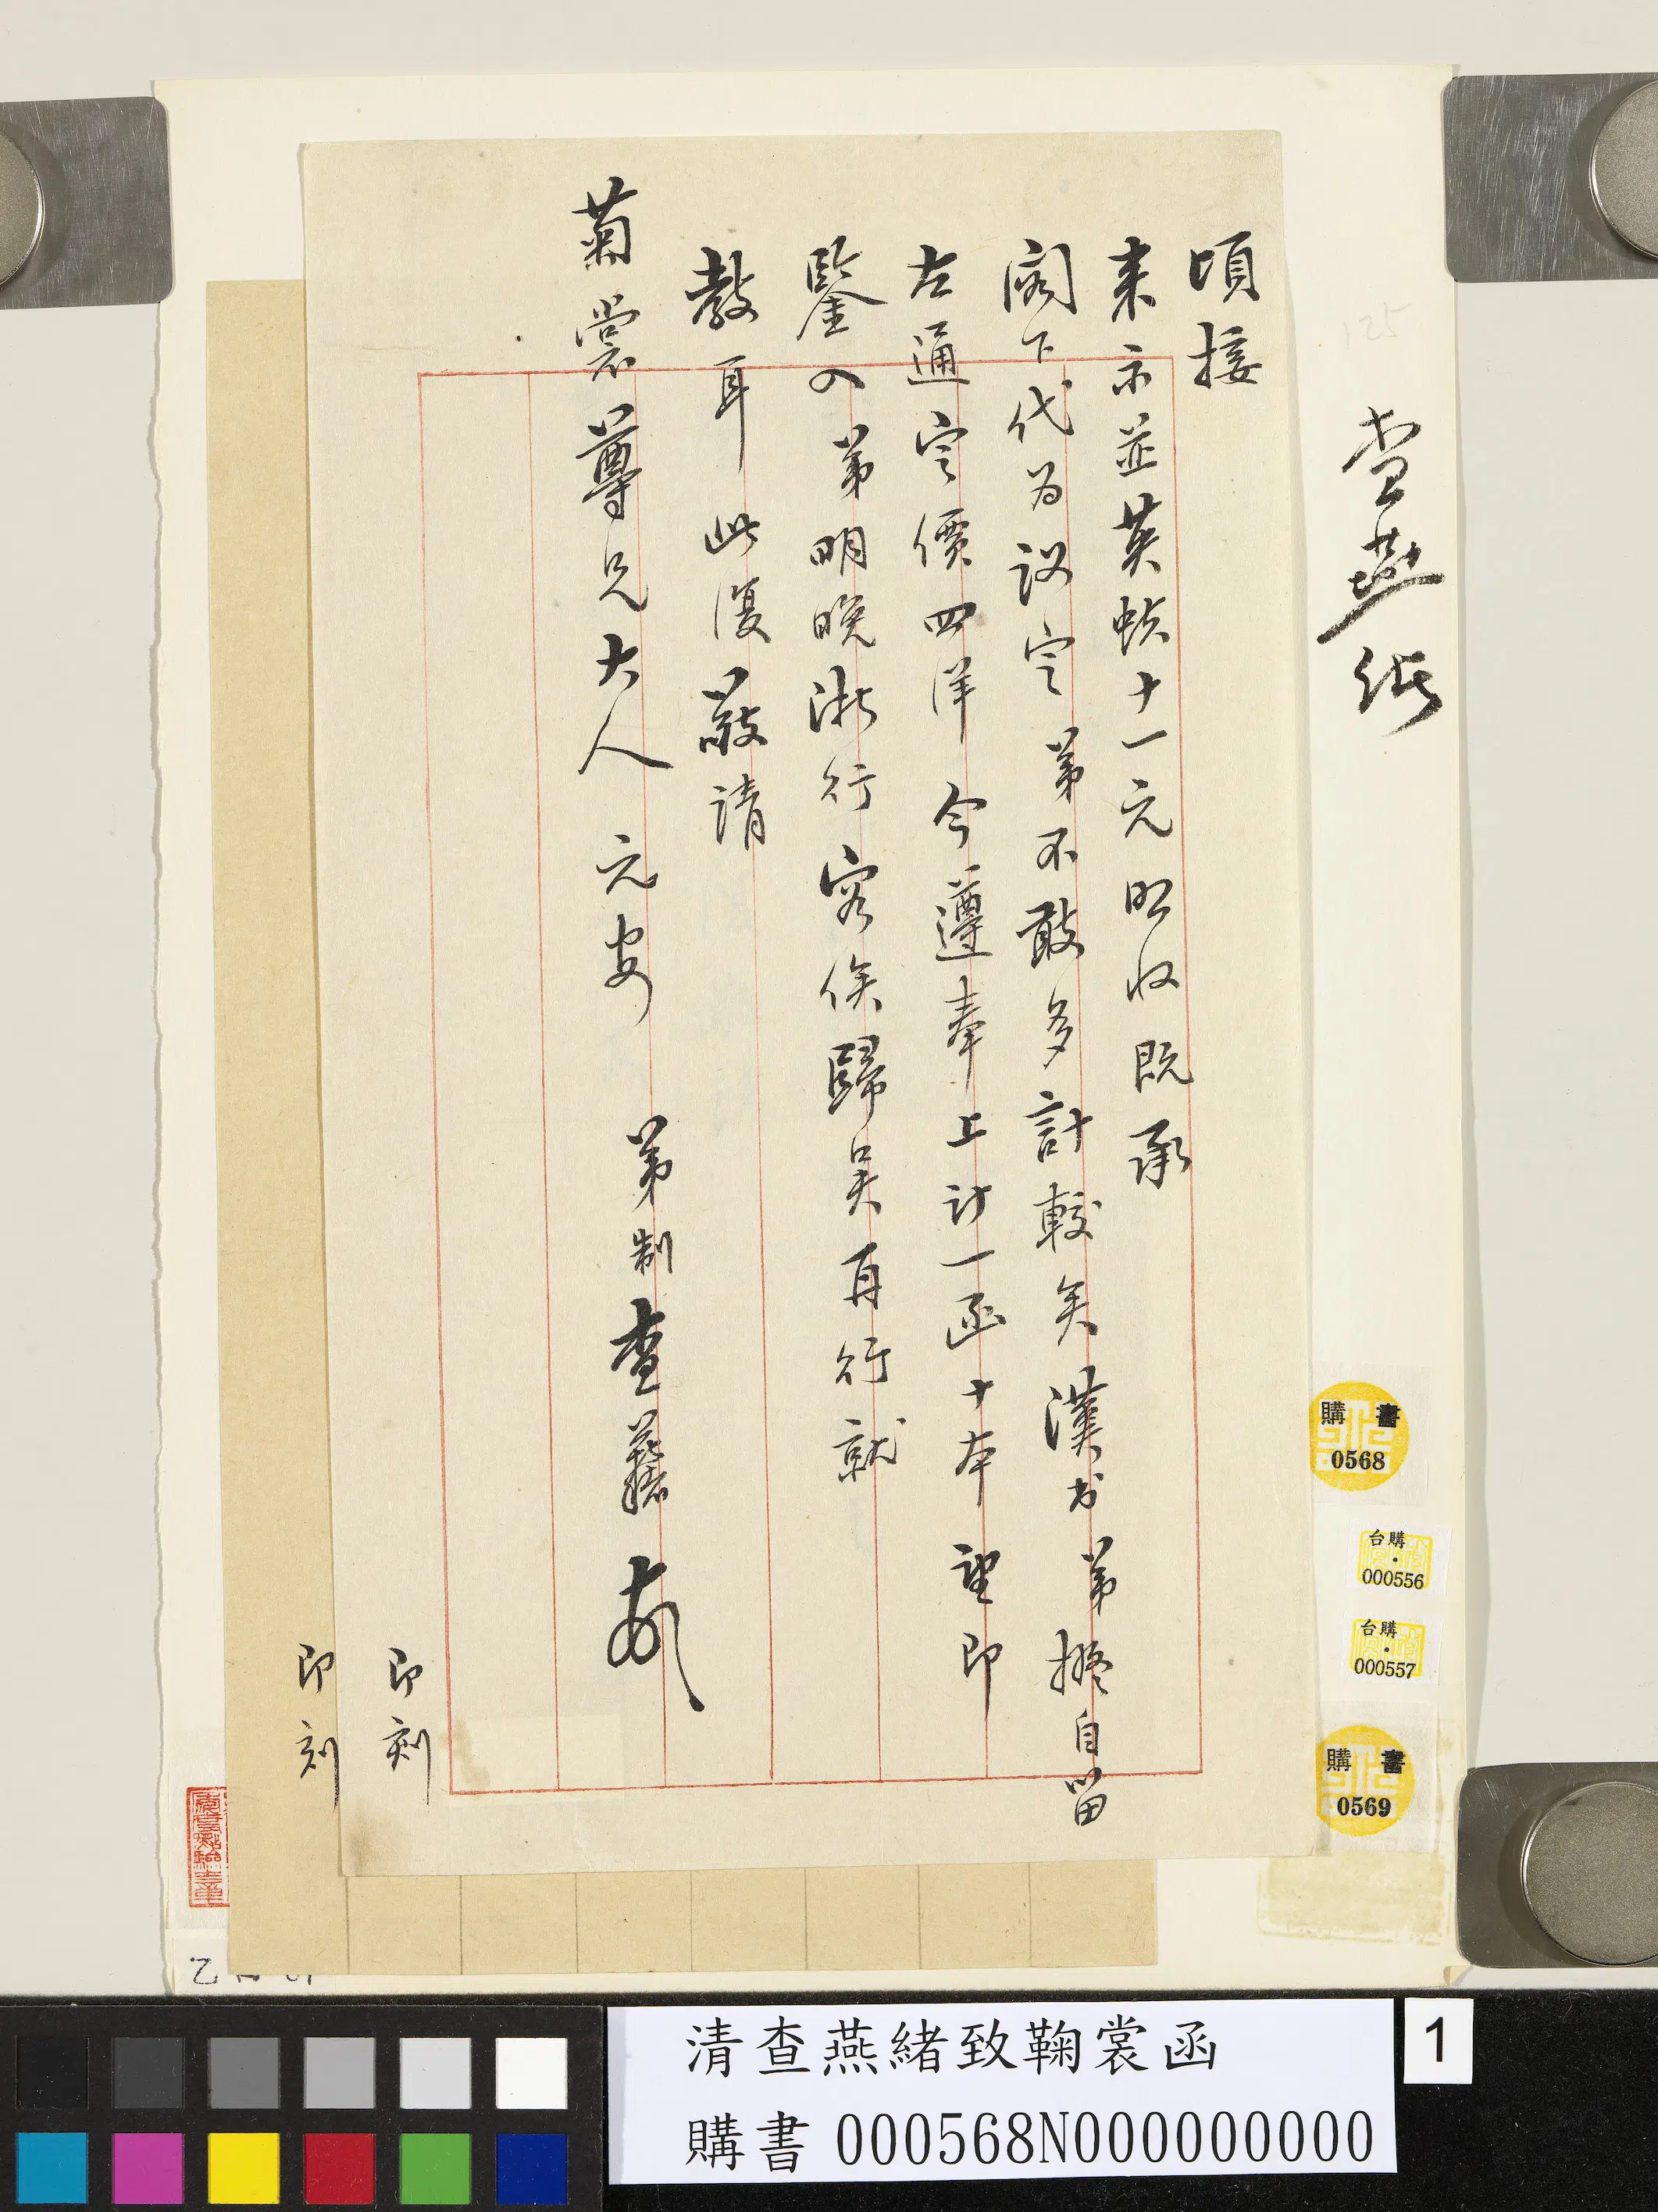 頃接
来示並英蚨十一元照收既承
閣下代为议定弟不敢多計較矣漢书弟擬自留
左通定價四洋今遵奉上计一函十本望即
鑒入弟明晚浙行容俟歸吴再行就
教耳此復敬請
菊裳尊兄大人元安 弟制查燕緒頓
即刻
即刻
查燕緒
125
購書
0568
台購
000556
台購
000557
購書
0569
清查燕緒致鞠裳函
購書 000568N000000000
1